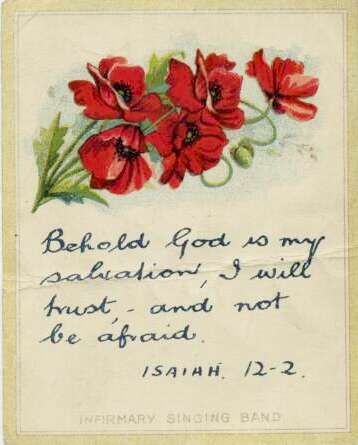 Behold God is my
salvation, I will
trust, - and not
be afraid.
ISAIAH. 12-2.
INFIRMARY SINGING BAND